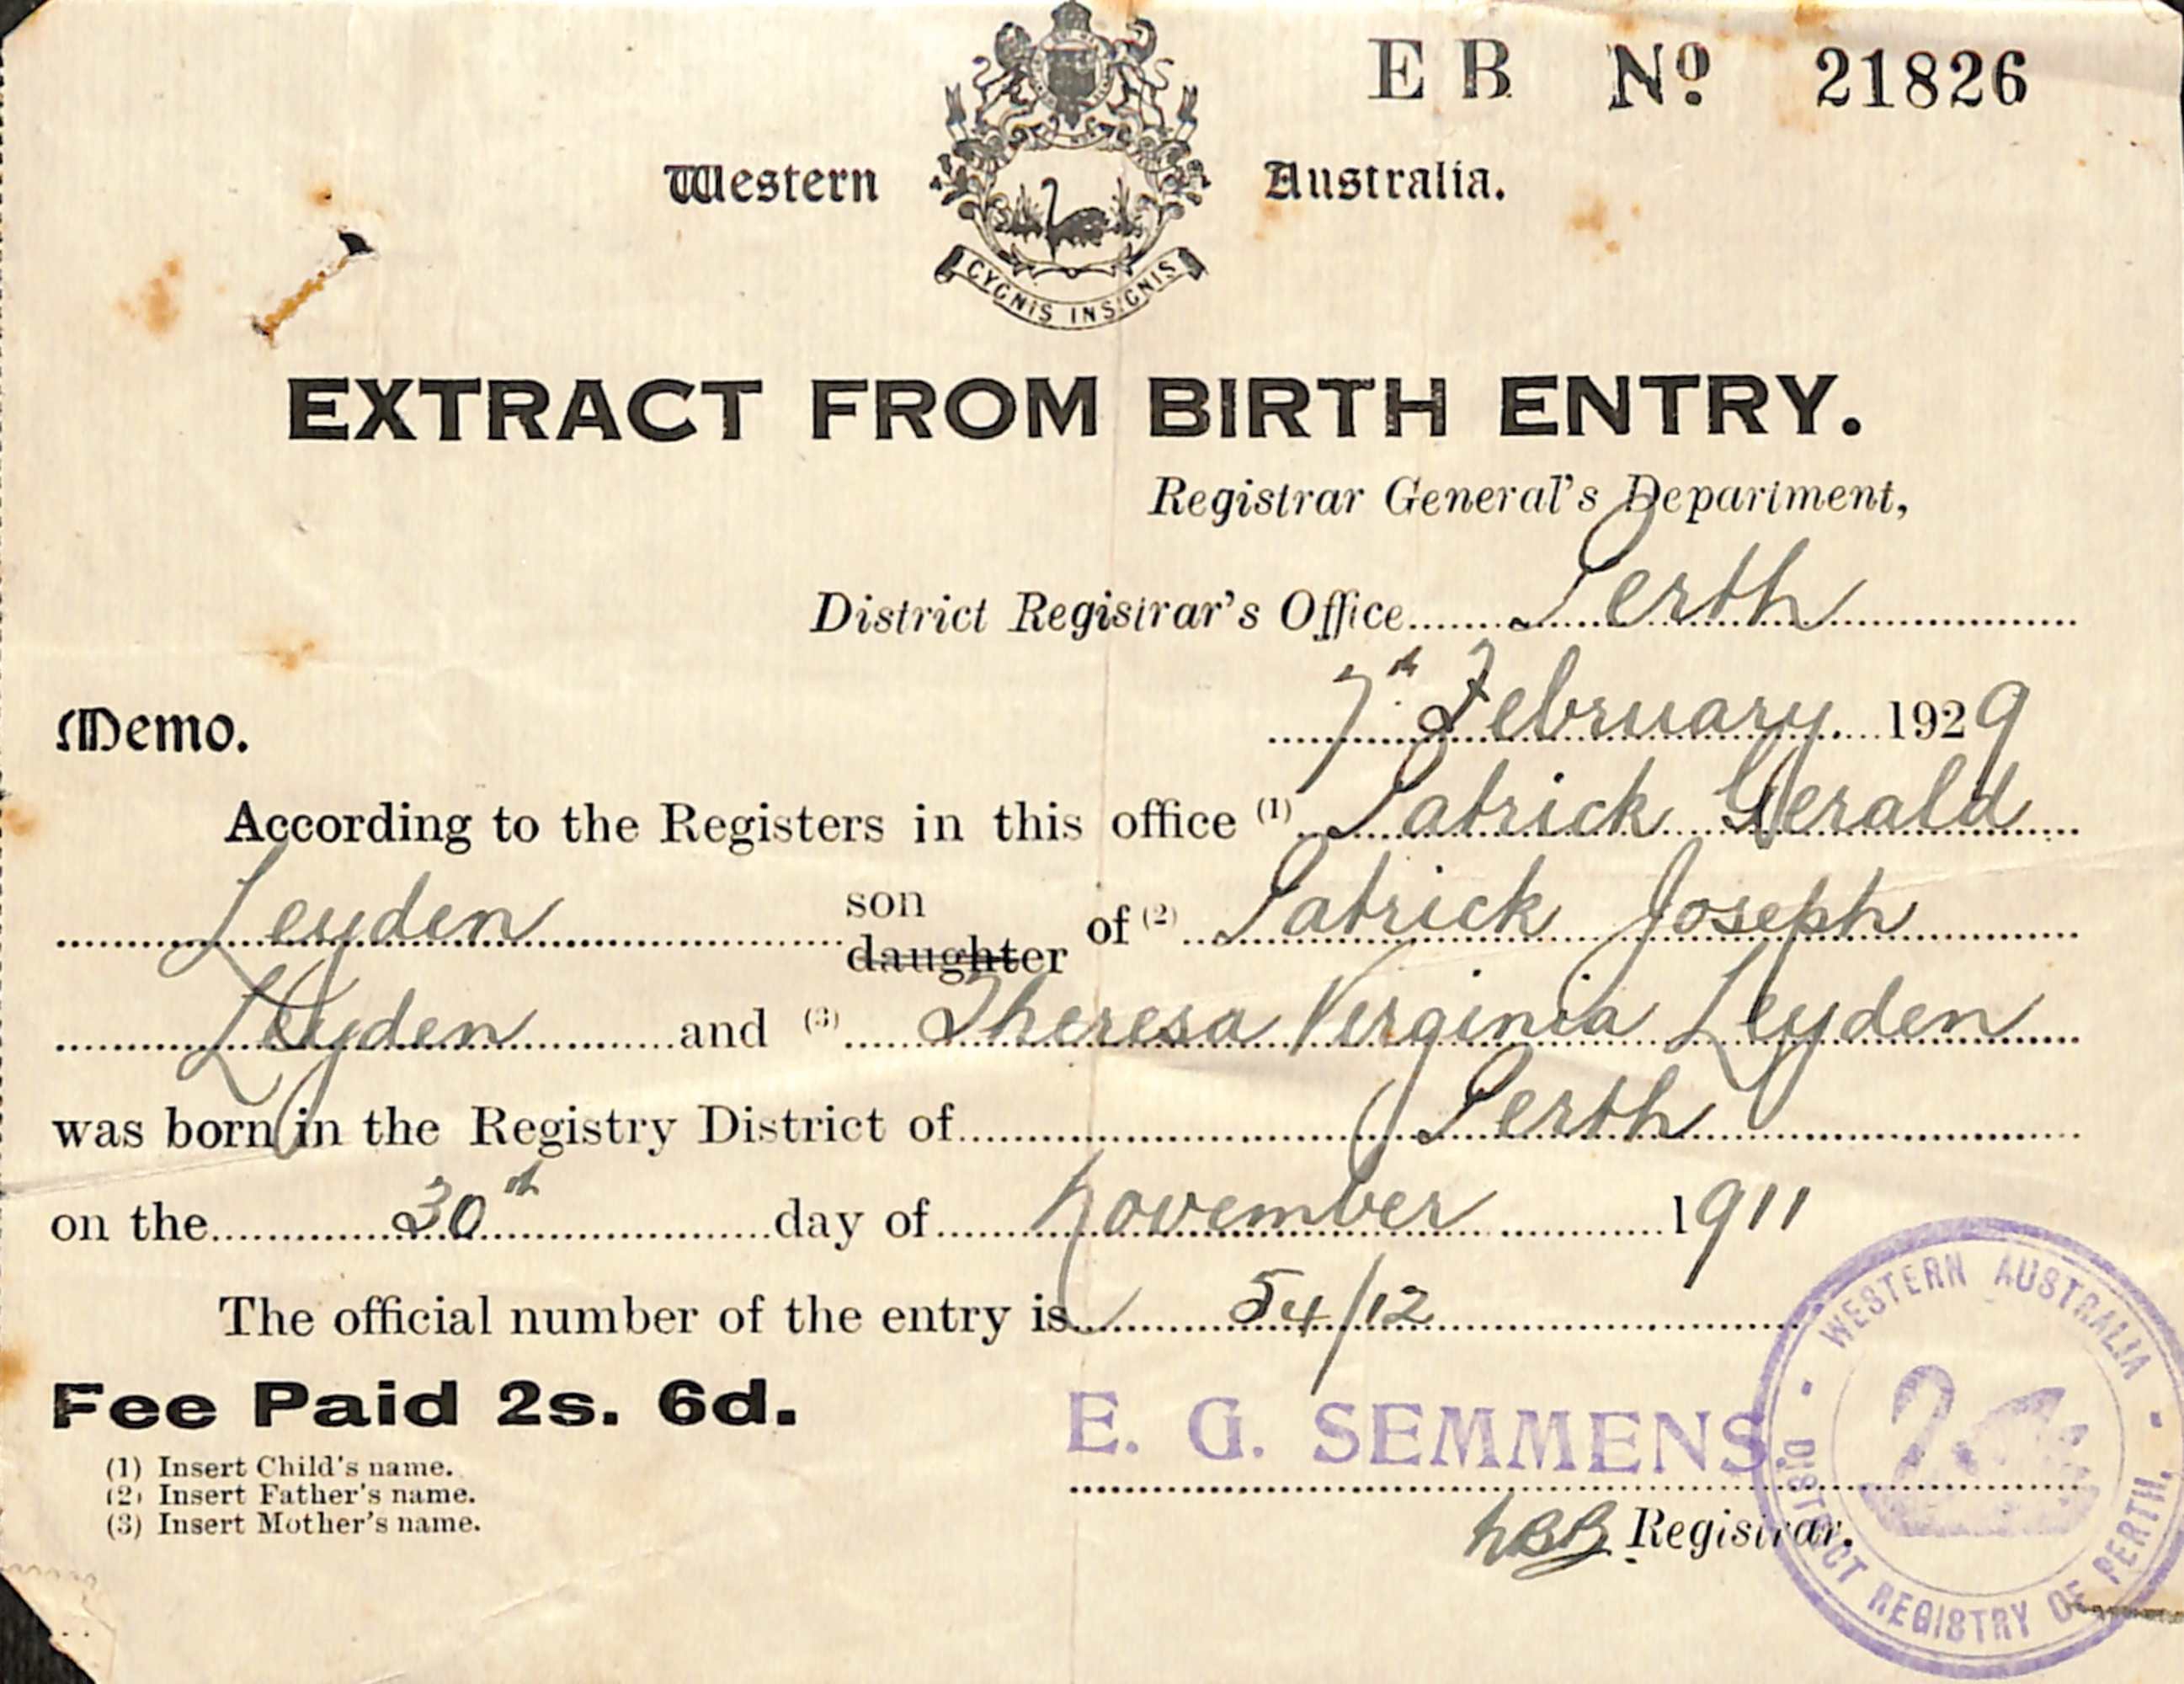 EB Nº 21826
Western Australia.
CYGNIS INSIGNIS
EXTRACT FROM BIRTH ENTRY.
Registrar General's Department,
District Registrar's Office Perth
7th February 1929
Memo.
According to the Registers in this office (1) Patrick Gerald
Leyden son daughter of (2) Patrick Joseph
Leyden and (3) Theresa Verginia Leyden
was born in the Registry District of Perth
on the 30th day of November 1911
The official number of the entry is 54/12
Fee Paid 2s. 6d.
E. G. SEMMENS
(1) Insert Child's name.
(2) Insert Father's name.
(3) Insert Mother's name.
Registrar.
WESTERN AUSTRALIA
DISTRICT REGISTRY OF PERTH.